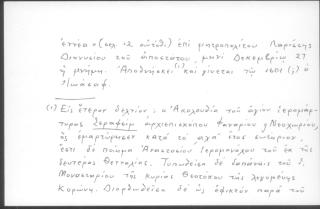 έννεα ν (σελ. 12 αὐτόθι) ἐπὶ μητροπολίτου Λαρίσσης
Διονυσίου τοῦ ἀποστάτου, μηνὶ Δεκεμβρίῳ 27
ἡ μνήμη. Ἀποθνήσκει(1) καὶ γίνεται τῷ 1601 (;) ὁ
Ἰωάσαφ.
(1) Εἰς ἕτερον δελτίον: "Ἀκολουθία τοῦ ἁγίου ἱερομάρ-
τυρος Σεραφεὶμ ἀρχιεπισκόπου Φαναρίου κ Νεοχωρίου,
ὃς ἐμαρτύρησεν κατὰ τὸ ͵αχα΄ ἔτος σωτήριον.
ἔστι δὲ ποίημα Ἀναστασίου Ἱερομονάχου τοῦ ἐκ τῆς
δευτέρας Θετταλίας. Τυπωθεῖσα δὲ δαπάναις τοῦ ἱ.
Μοναστηρίου τῆς κυρίας Θεοτόκου τῆς λεγομένης
Κορώνη. Διορθωθεῖσα δὲ ὡς ἐφικτὸν παρὰ τοῦ